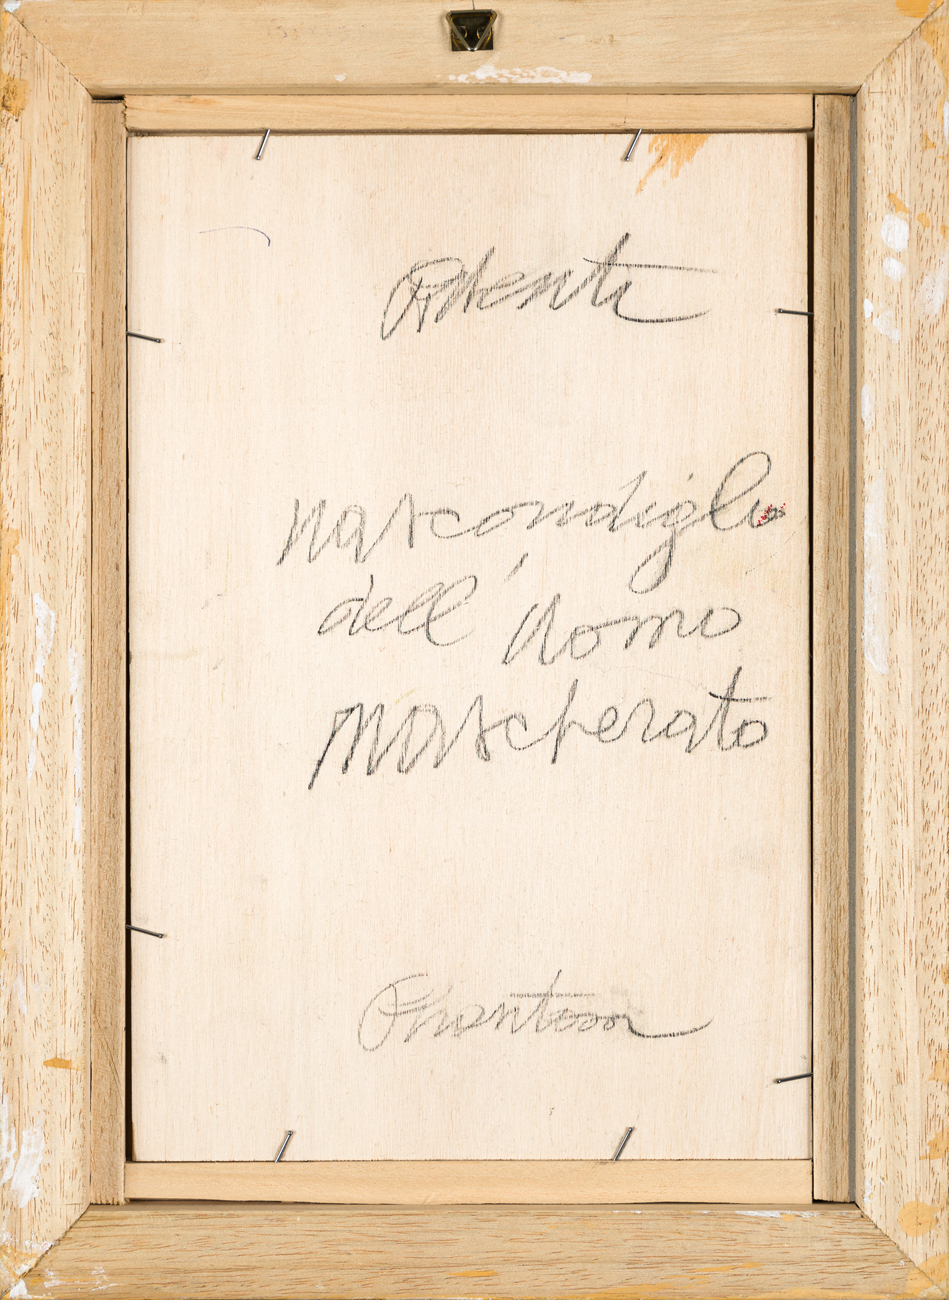 nascondiglio
dell' Uomo
mascherato
Phantom